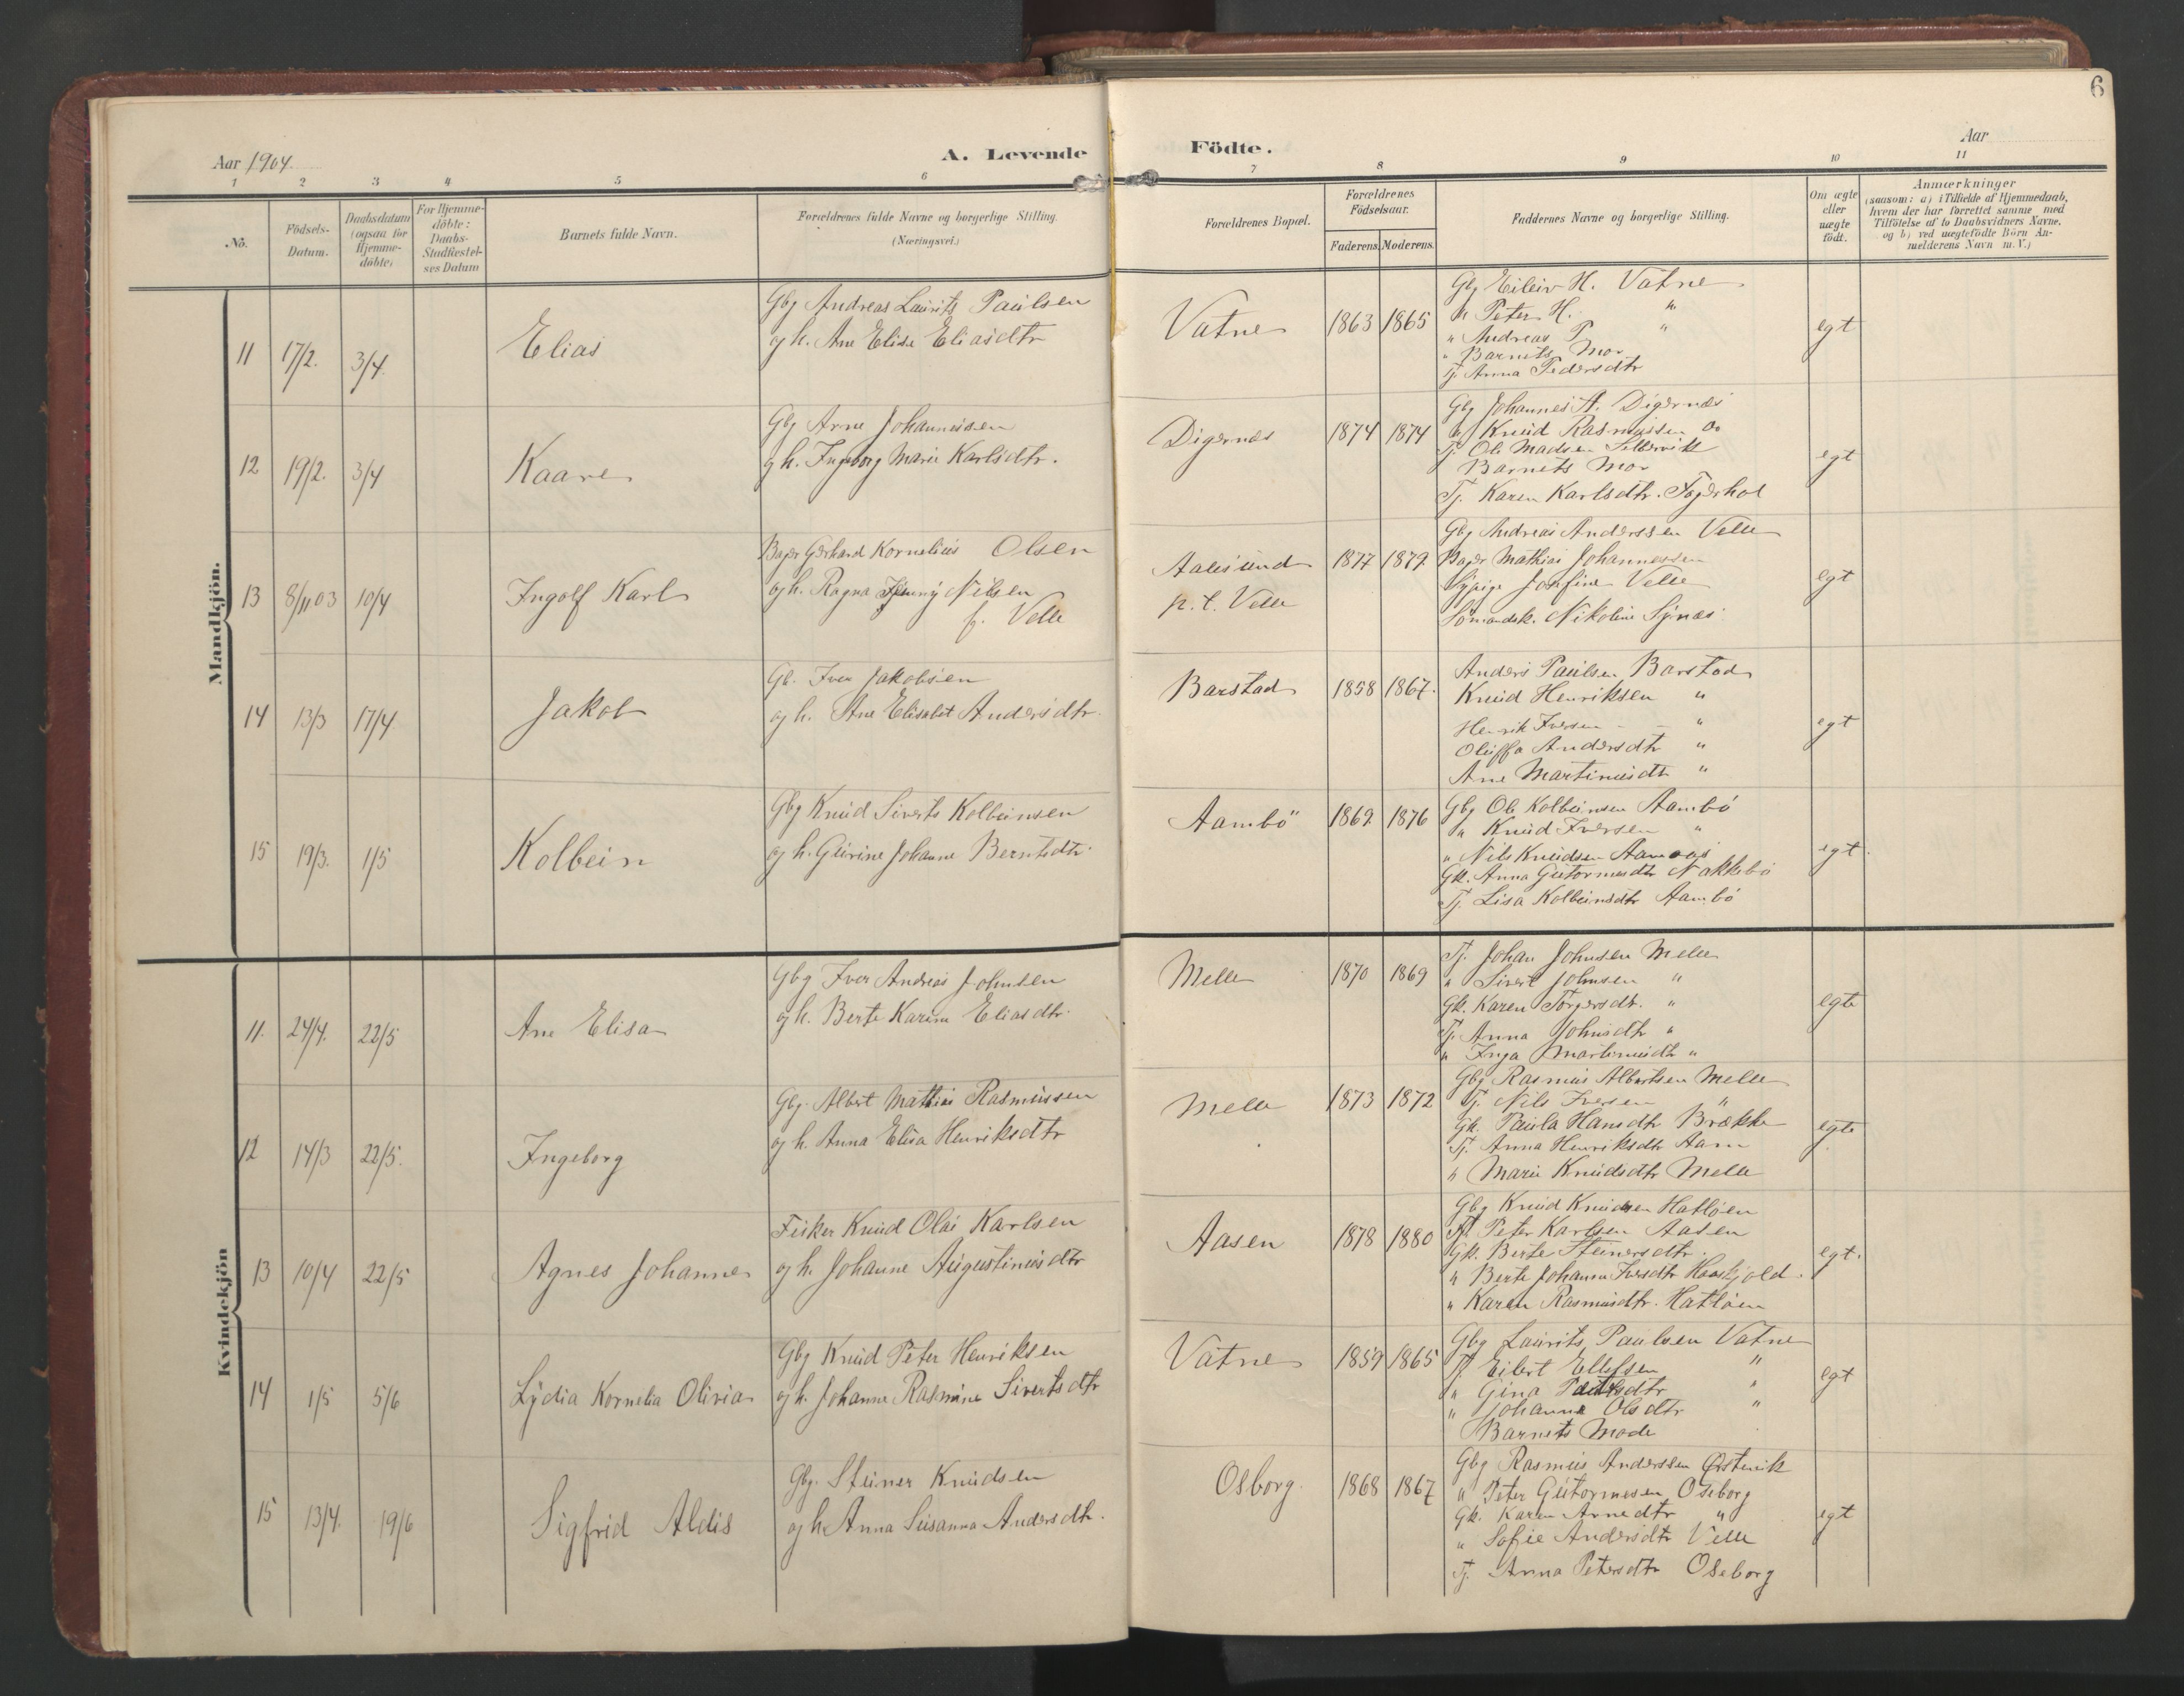 6
Aar 1904
A. Levende
Födte.
Aar
1 2 3 4 5 6 7 8 9 10 11
No.
Födsels-
Datum.
Daabsdatum
(ogsaa for
Hjemme-
döbte)
For Hjemme-
döbte:
Daabs-
Stadfæstel-
ses Datum
Barnets fulde Navn.
Forældrenes fulde Navne og borgerlige Stilling.
(Næringsvei.)
Forældrenes Bopæl.
Forældrenes
Födselsaar.
Faderens. Moderens.
Faddernes Navne og borgerlige Stilling.
Om ægte
eller
uægte
födt.
Anmærkninger
(saasom: a) i Tilfælde af Hjemmedaab,
hvem der har forrettet samme med
Tilföielse af to Daabsvidners Navne,
og b) ved uægtefödte Börn An-
melderens Navn m. V.)
Mandkjön.
11 17/2. 3/4. Elias
Gbg Andreas Laurits Paulsen
og h. Ane Elise Eliasdtr
Vatne 1863 1865
Gbg Eileiv H. Vatne
" Peter H. "
" Andreas P. "
" Barnets Mor
Tj. Anna Pedersdtr
egt
12 19/2. 3/4 Kaare
Gbg Arne Johannessen
og h. Ingeborg Marie Karlsdtr.
Digernes 1874 1874
Gbg Johannes A. Digernes
" Knud Rasmussen Do
Tj. Ole Madsen
Barnets Mor
Tj. Karen Karlsdtr. Fagerhol
egt
13 8/11 03 10/4 Ingolf Karl
Bager Gerhard Kornelius Olsen
og h. Ragna Jenny Nilsen
f. Velle
Aalesund
p. t. Velle
1877 1879
Gbg Andreas Anderssen Velle
Bager Mathias Johannessen
Sypige Josefine Velle
Sömandsk. Nikoline Synes
egt
14 13/3 17/4 Jakob
Gb. Iver Jakobsen
og h. Ane Elisabet Andersdtr.
Barstad 1858 1867.
Anders Paulsen Barstad
Knud Henriksen "
Henrik Iversen - - "
Oluffa Andersdtr "
Ane Martinusdtr "
egt
15 19/3. 1/5 Kolbein
Gbg Knud Siverts Kolbeinsen
og h. Gurine Johanne Berntsdtr.
Aambö 1869. 1876
Gbg Ole Kolbeinsen Aambö
" Knud Iversen "
" Nils Knudsen
Gk. Anna Guttormsdtr Nakkebö
Tj. Lisa Kolbeinsdtr Aambö
egt.
Kvindekjön
11. 24/4. 22/5 Ane Elisa
Gbg Iver Andreas Johnsen
og h. Berte Karine Eliasdtr.
Melle 1870 1869
Tj. Johan Johnsen Melle
" Sivert Johnsen "
Gk. Karen Torgersdt. "
Tj. Anna Johnsdtr "
" Inga Martinusdtr "
egte
12 14/3 22/5. Ingeborg
Gbg. Albert Mathias Rasmussen
og h. Anna Elisa Henriksdtr
Melle 1873 1872
Gbg Rasmus Albertsen Melle
Tj. Nils Iversen "
Gk. Paula Hansdtr Brække
Tj. Anna Henriksdtr Aam
" Marie Knudsdtr Melle
egte
13 10/4 22/5 Agnes Johanne
Fisker Knud Olai Karlsen
og h. Johanne Augustinusdtr
Aasen 1878 1880
Gbg Knud Knudsen Hatløen
Tj. Peter Karlsen Aasen
Gk. Berte Steinersdtr.
" Berte Johanne Iversdtr Haaskjold.
" Karen Rasmusdtr. Hatløen
egt.
14 1/5 5/6 Lydia Kornelia Olivia
Gbg Knud Peter Henriksen
og h. Johanne Rasmine Sivertsdtr
Vatne 1859 1865
Gbg Laurits Paulsen Vatne
Tj. Eilert Ellefsen "
" Gina "
" Johanna Olsdtr "
Barnets Mode
egt
15 13/4. 19/6 Sigfrid Aldis
Gbg. Steiner Knudsen
og h. Anna Susanna Andersdtr.
Osborg. 1868 1867
Gbg Rasmus Anderssen Østenvik
" Peter Guttormsen Oseborg
Gk. Karen Arnedtr "
" Sofie Andersdtr Velle
Tj. Anna Petersdtr Oseborg
egt